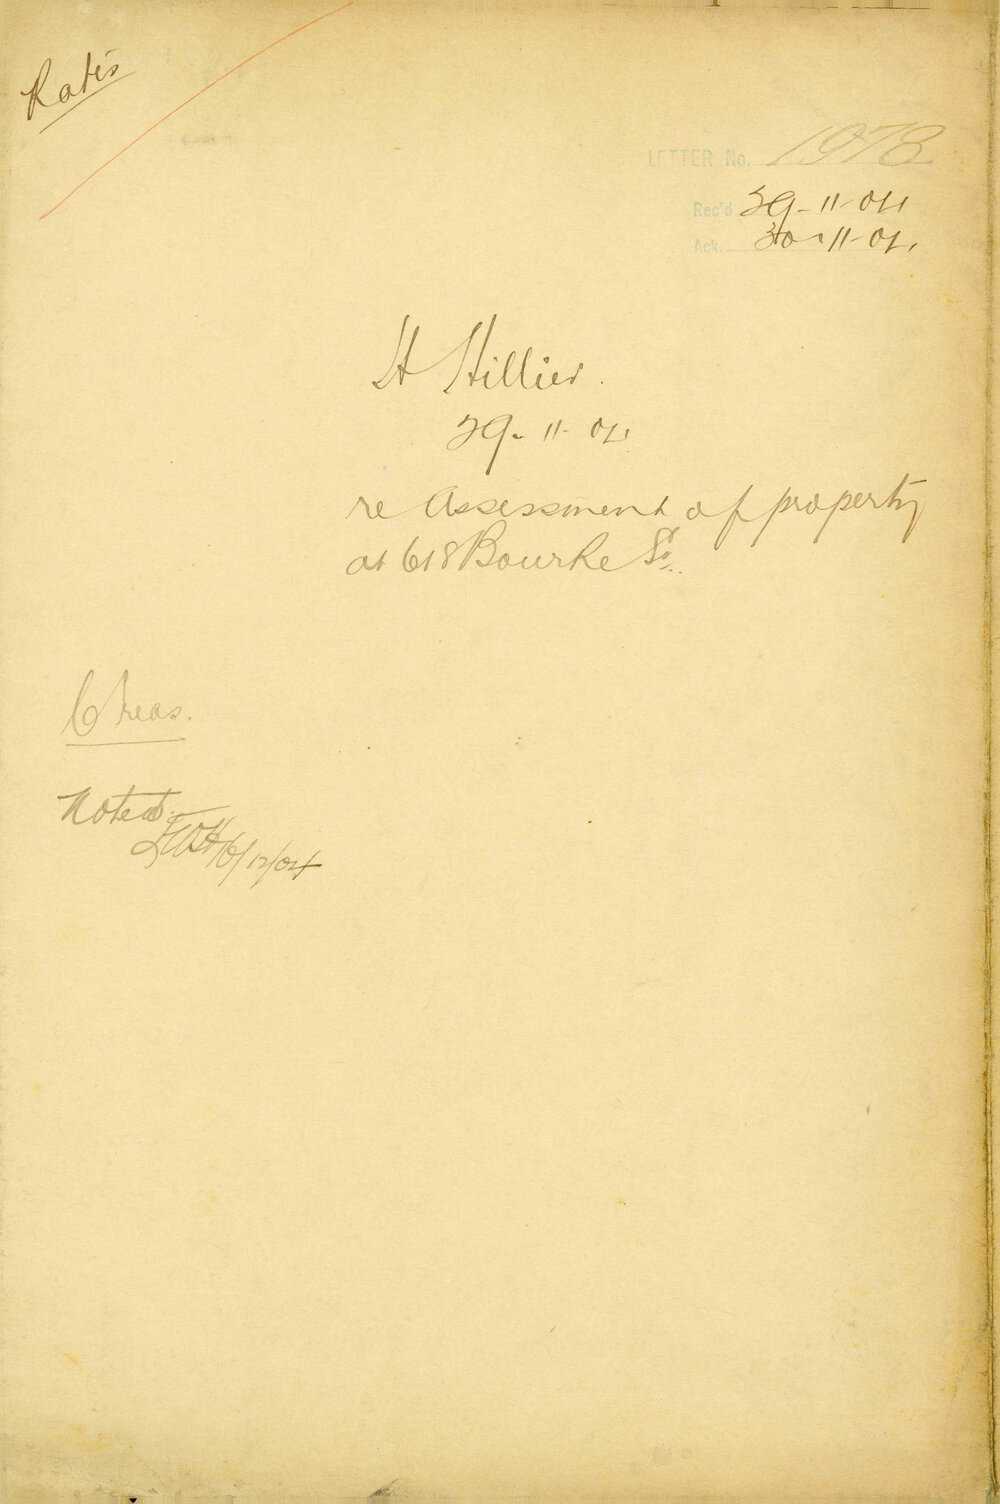 Rates
LETTER No. 1978
Rec'd 29-11-04
Ack. 30-11-04.
H Hillier.
29-11-04.
re Assessment of property
at 618 Bourke St.
C Treas.
Noted.
6/12/04